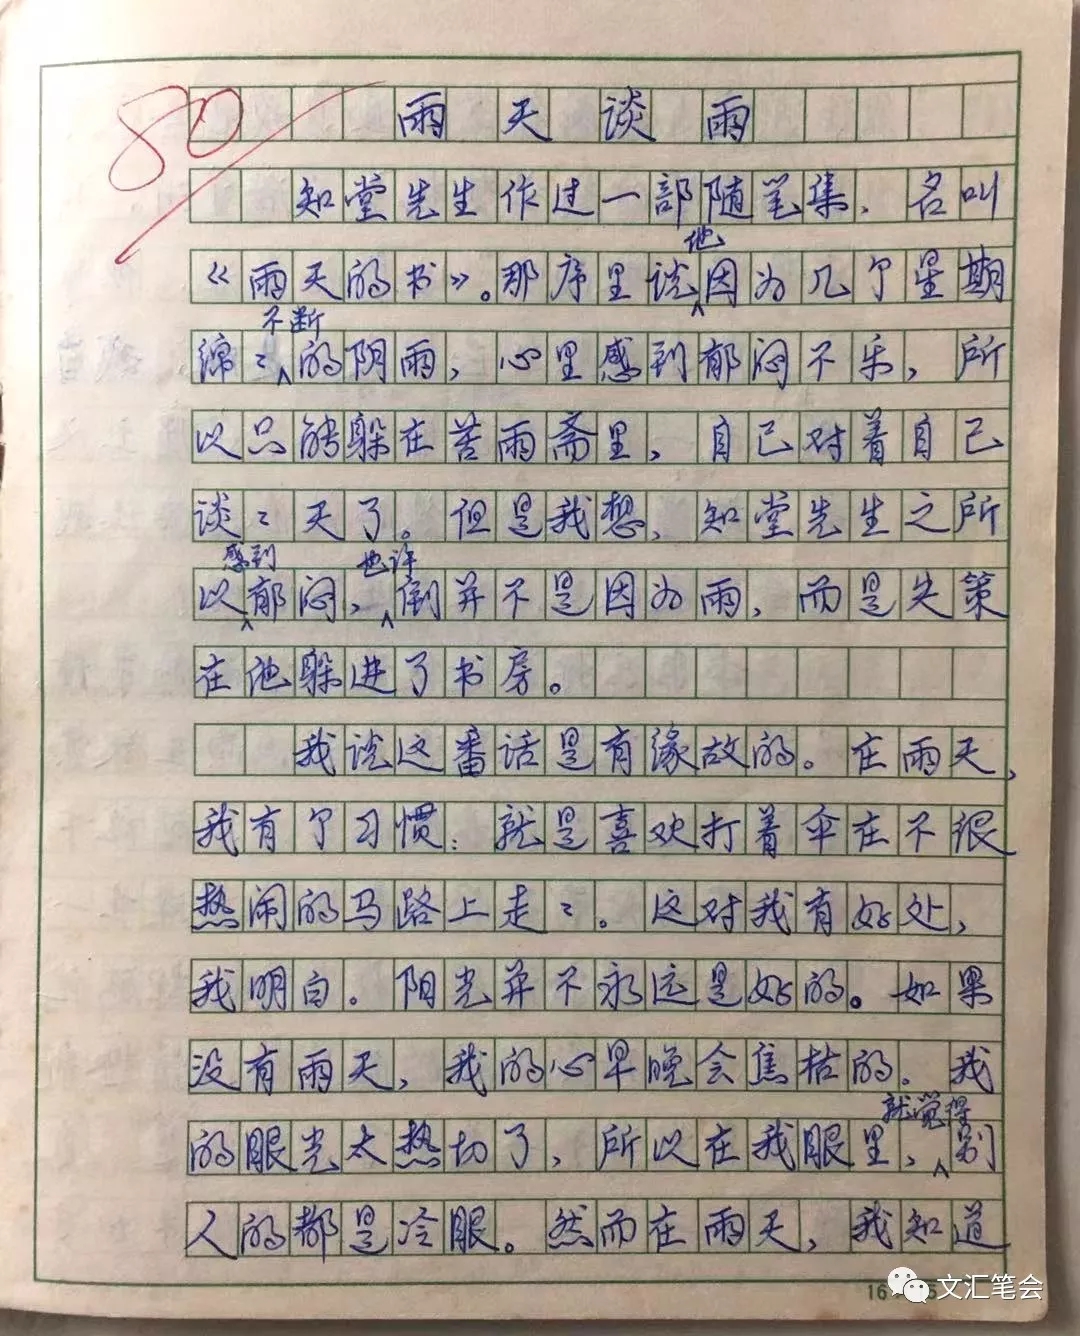 80
雨天谈雨
知堂先生作过一部随笔集，名叫
《雨天的书》。那序里说他因为几个星期
绵々不断的阴雨，心里感到郁闷不乐，所
以只能躲在苦雨斋里，自己对着自己
谈々天了。但是我想，知堂先生之所
以感到郁闷，也许倒并不是因为雨，而是失策
在他躲进了书房。
我说这番话是有缘故的。在雨天，
我有个习惯：就是喜欢打着伞在不很
热闹的马路上走々。这对我有好处，
我明白。阳光并不永远是好的。如果
没有雨天，我的心早晚会焦枯的。我
的眼光太热切了，所以在我眼里，就觉得别
人的都是冷眼。然而在雨天，我知道
文汇笔会